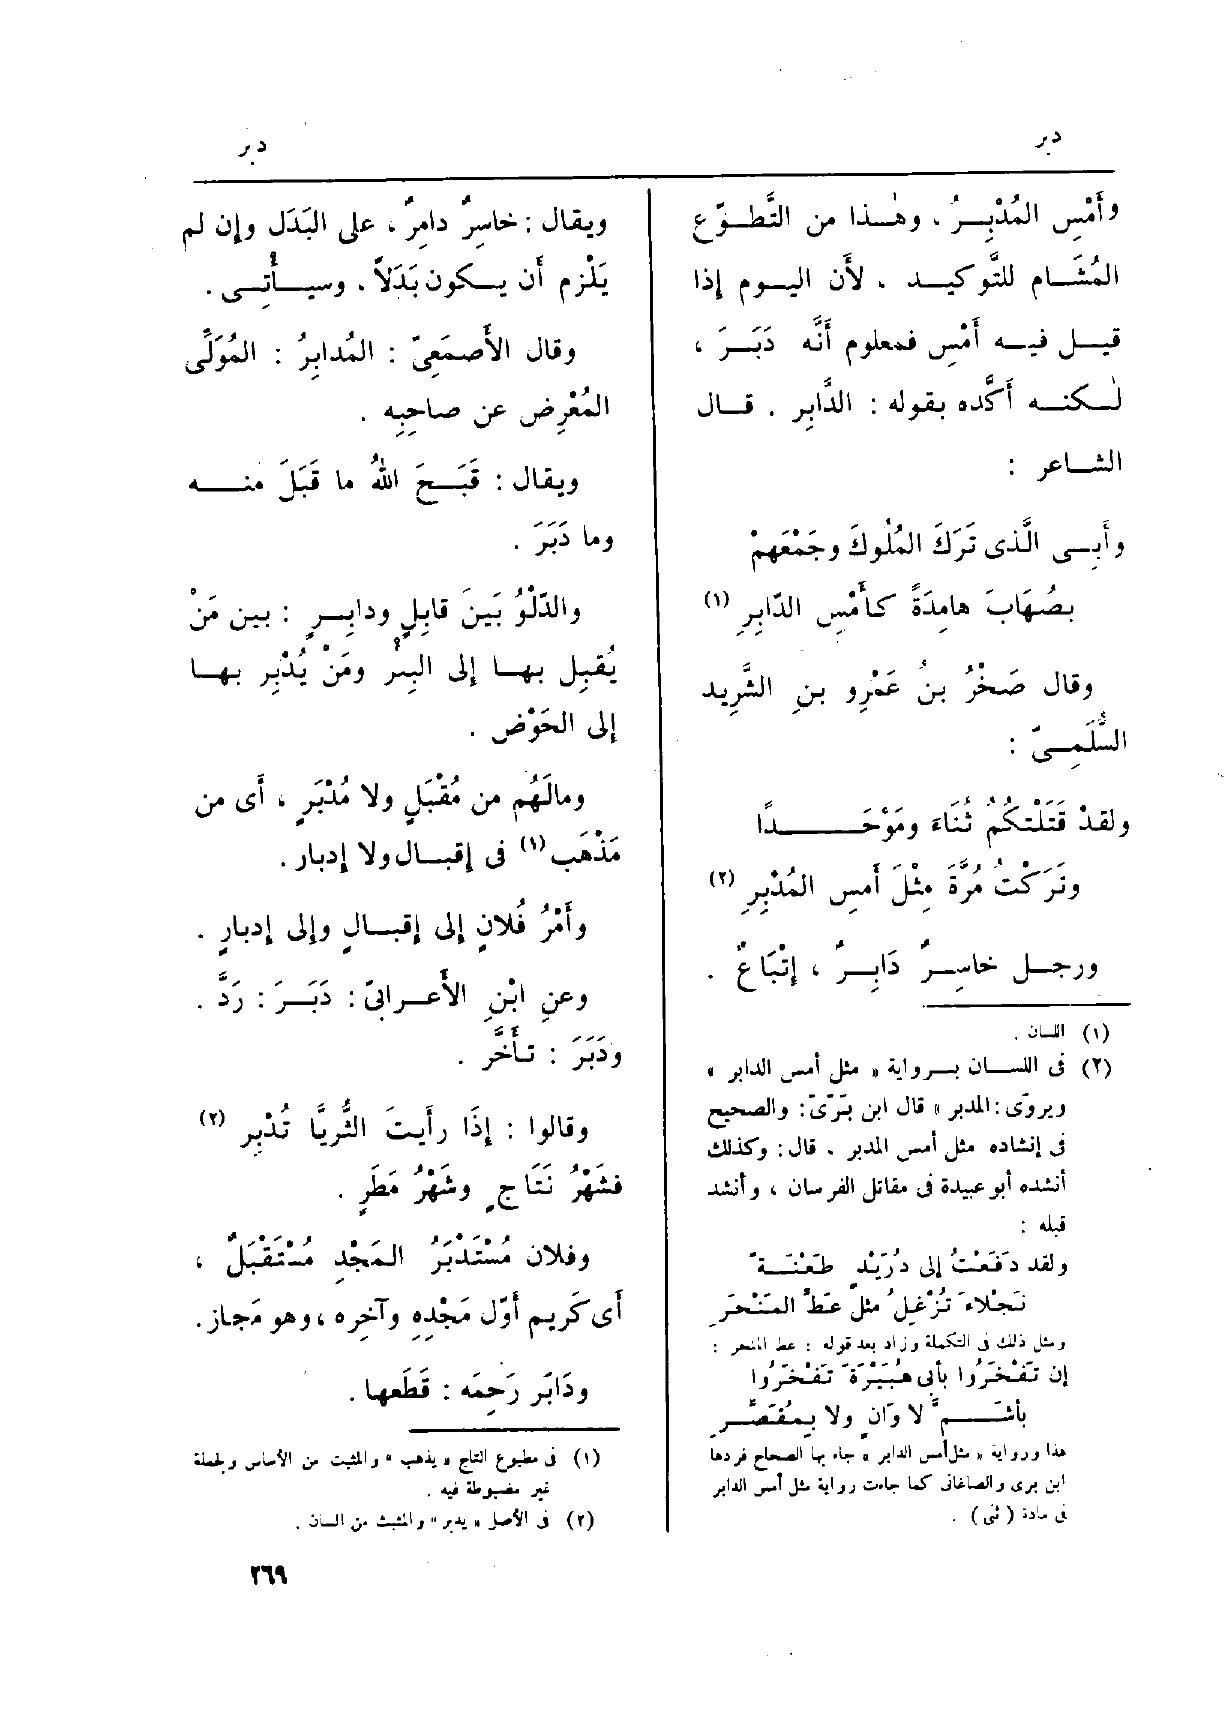 دبر
وأَمْسِ المُدْبِـرُ ، وهٰـذا من التَّطـوّع
المُشَـام للتَّوكيـد ، لأَن اليـوم إذا
قيـل فيـه أَمْسِ فمعلوم أَنَّه دَبَـرَ ،
لٰـكنـه أَكَّده بقوله : الدَّابِر . قـال
الشـاعر :
وأَبِـى الَّذى تَرَكَ المُلُوكَ وجَمْعَهمْ
بصُهَابَ هامِدَةً كأَمْسِ الدّابِرِ (١)
وقال صَخْرُ بنُ عَمْرِو بنِ الشَّرِيد
السُّلَمِـىّ :
ولقدْ قَتَلْتكُمُ ثُنَاءَ ومَوْحَـــدًا
وتَرَكْتُ مُرَّةَ مِثْلَ أَمسِ المُدْبِرِ (٢)
ورجـل خاسِـرٌ دَابِـرٌ ، إِتْبَاعٌ .
(١) اللسان .
(٢) فى اللسـان بـرواية « مثل أمس الدابر »
ويروَى : المدبر » قال ابن بَرّىّ : والصحيح
فى إنشاده مثل أمس المدبر . قال : وكذلك
أنشده أبو عبيدة فى مقاتل الفرسان ، وأنشد
قبله :
ولقد دَفَعْتُ إلى دُرَيْدٍ طَعْنَـةً
نَجْلاءَ تُزْغِلُ مثلَ عَطِّ المَنْحَرِ
ومثل ذلك فى التكملة وزاد بعد قوله : عط المنحر :
إن تَفْخَرُوا بأبى هُبَيْرَةَ تَفْخَرُوا
بأشَـــمَّ لا وَانٍ ولا بمُقَصِّـرِ
هذا ورواية « مثل أمس الدابر » جاء بها الصحاح فردها
ابن برى والصاغانى كما جاءت رواية مثل أمس الدابر
فى مادة ( ثنى ) .
دبر
ويقال : خاسِرٌ دامِرٌ ، على البَدَل وإن لم
يَلْزم أَن يـكون بَدَلاً ، وسيـأْتـى .
وقال الأَصمَعِىّ : المُدابِرُ : المُوَلِّى
المُعْرِض عن صاحِبِه .
ويقال : قَبَـحَ اللهُ ما قَبَلَ منـه
وما دَبَرَ .
والدّلْوُ بَينَ قابِلٍ ودابِـرٍ : بين مَنْ
يُقبِل بهـا إلى البِئْر ومَنْ يُدْبِر بهـا
إلى الحَوْض .
ومالَهُم من مُقْبَلٍ ولا مُدْبَرٍ ، أَى من
مَذْهَب (١) فى إقبـال ولا إدبار .
وأَمْرُ فُلانٍ إلى إقبـالٍ وإلى إدبارٍ .
وعنِ ابْنِ الأَعـرابىّ : دَبَـرَ : رَدَّ .
ودَبَرَ : تـأَخَّر .
وقالوا : إِذَا رأَيتَ الثُّريَّا تُدْبِر (٢)
فشَهْرُ نَتَاجٍ وشَهْرُ مَطَرٍ .
وفلان مُسْتَدْبَرُ المَجْدِ مُسْتَقْبَلٌ ،
أَى كَريم أَوّل مَجْدِهِ وآخِرِه ، وهو مَجاز .
ودَابَر رَحِمَه : قَطَعها .
(١) فى مطبوع التاج « يذهب » والمثبت من الأساس ولفظة
غير مضبوطة فيه .
(٢) فى الأصل « يدبر » والمثبت من اللسان .
٢٦٩